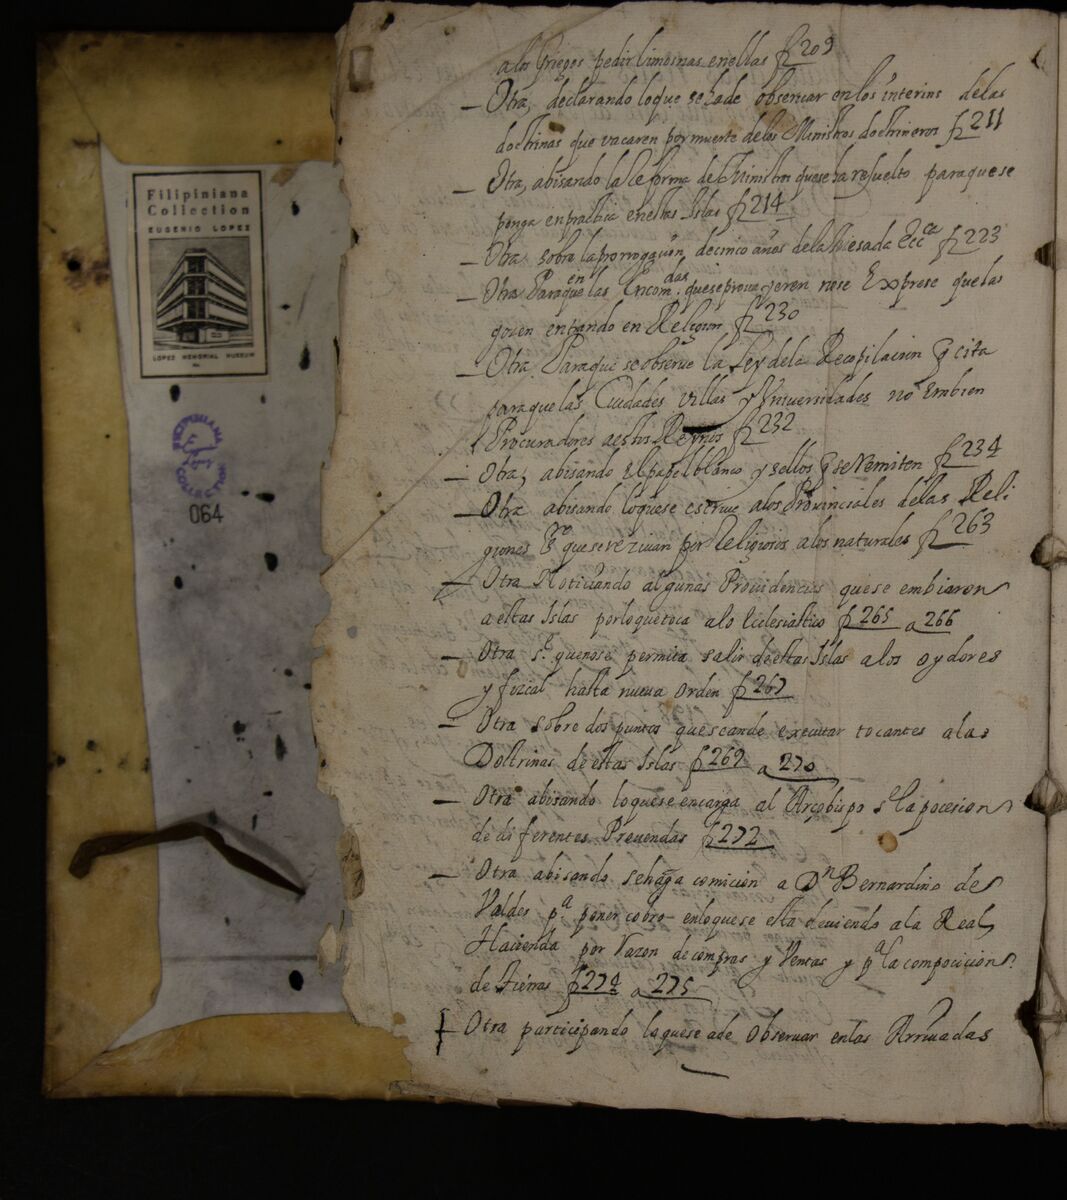 Filipiniana
Collection
EUGENIO LOPEZ
LOPEZ MEMORIAL MUSEUM
FILIPINIANA
COLLECTION
064
a los Griegos pedir limosnas en ellas f 209
— Otra, declarando lo que se ha de observar en los interins de las
doctrinas que vacaren por muerte de los Ministros doctrineros f 211
— Otra, abisando la Reforma de Ministros que se ha resuelto para que se
ponga en practica en estas Islas f 214
— Otra sobre la prorrogacion de cinco años de la Mesada Ecca f 223
— Otra Para que en las Encomdas que se proveyeren no se Exprese que las
gozen entrando en Religion f 230
— Otra Para que se observe la Ley de la Recopilacion q cita
para que las Ciudades villas y Universidades no Embien
Procuradores a estos Reynos f 232
— Otra, abisando el papel blanco y sellos q se Remiten f 234
— Otra abisando lo que se escrive a los Provinciales de las Reli
giones que se rezivan por Religiosos a los naturales f 263
— Otra Noticiando algunas Providencias que se embiaron
a estas Islas por lo que toca a lo Eclesiastico f 265 a 266
— Otra se que no se permita salir de estas Islas a los oydores
y fizcal hasta nueva orden f 267
— Otra sobre dos puntos que se an de executar tocantes a las
Doctrinas de estas Islas f 269 a 270
— Otra abisando lo que se encarga al Arçobispo se la pocesion
de diferentes Prevendas f 272
— Otra abisando se haga comicion a Dn Bernardino de
Valdes pa poner cobro en lo que se esta deviendo a la Real
Hacienda por razon de compras y Ventas y pa la compocicion
de Tierras f 274 a 275
— Otra participando lo que se a de observar en las Arrivadas